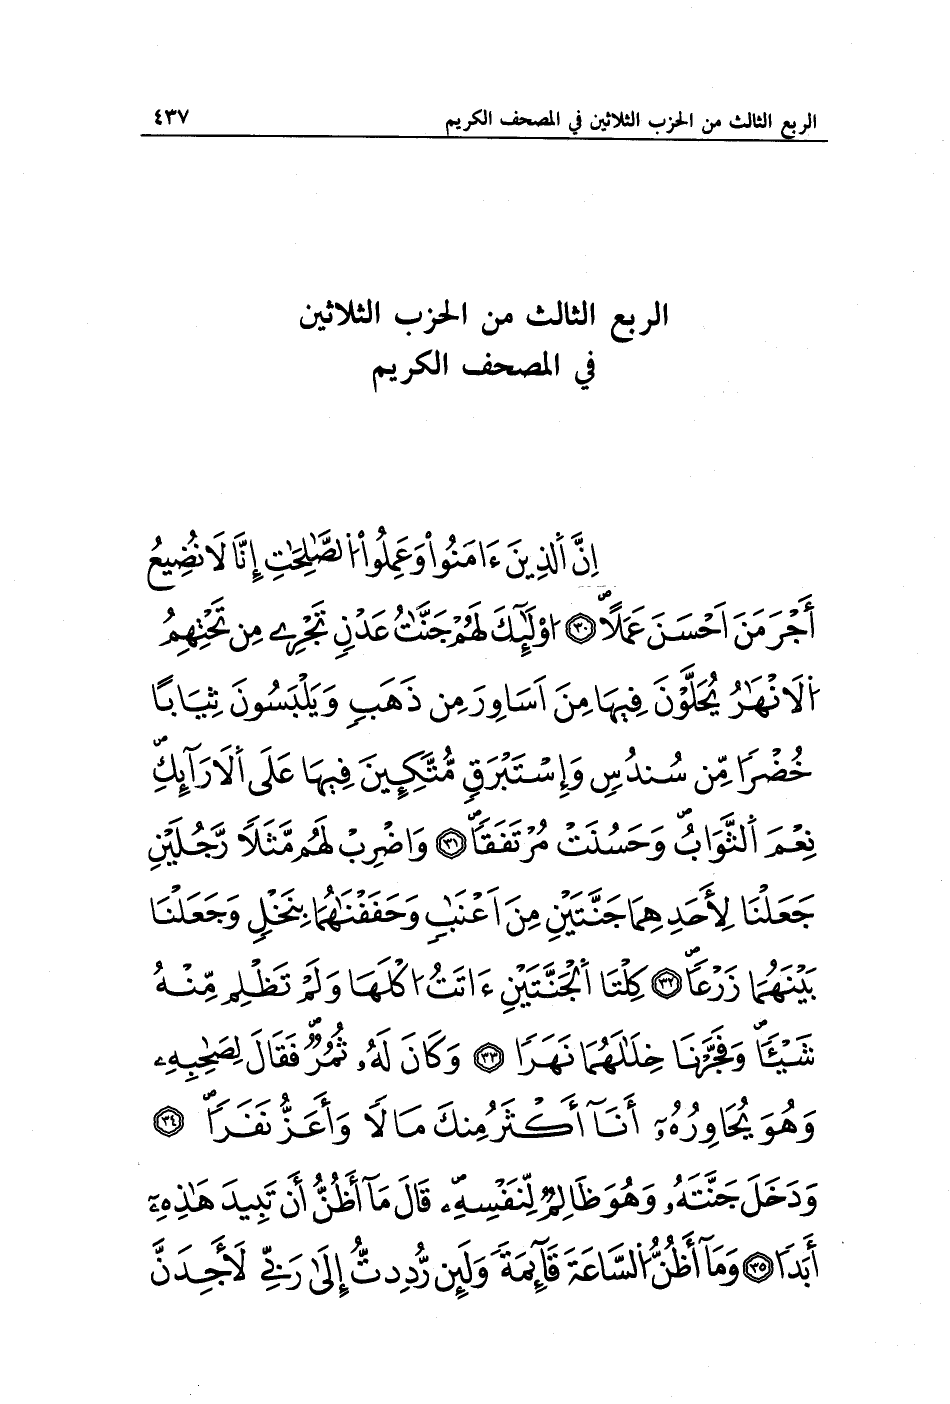 الربع الثالث من الحزب الثلاثين في المصحف الكريم ٤٣٧
الربع الثالث من الحزب الثلاثين
في المصحف الكريم
إِنَّ اَ۬لذِينَ ءَامَنُواْ وَعَمِلُواْ اُ۬لصَّٰلِحَٰتِ إِنَّا لَا نُضِيعُ
أَجْرَ مَنَ اَحْسَنَ عَمَلًاۖ ٣٠ اُ۟وْلَٰٓئِكَ لَهُمْ جَنَّٰتُ عَدْنٖ تَجْرِے مِن تَحْتِهِمُ
اُ۬لَانْهَٰرُ يُحَلَّوْنَ فِيهَا مِنَ اَسَاوِرَ مِن ذَهَبٖ وَيَلْبَسُونَ ثِيَابًا
خُضْرٗا مِّن سُندُسٖ وَإِسْتَبْرَقٖ مُّتَّكِـِٕينَ فِيهَا عَلَى اَ۬لَارَآئِكِۖ
نِعْمَ اَ۬لثَّوَابُۖ وَحَسُنَتْ مُرْتَفَقٗاۖ ٣١ وَاضْرِبْ لَهُم مَّثَلٗا رَّجُلَيْنِ
جَعَلْنَا لِأَحَدِهِمَا جَنَّتَيْنِ مِنَ اَعْنَٰبٖ وَحَفَفْنَٰهُمَا بِنَخْلٖ وَجَعَلْنَا
بَيْنَهُمَا زَرْعٗاۖ ٣٢ كِلْتَا اَ۬لْجَنَّتَيْنِ ءَاتَتُ ا۟كْلَهَا وَلَمْ تَظْلِم مِّنْهُ
شَيْـٔٗاۖ وَفَجَّرْنَا خِلَٰلَهُمَا نَهَرٗا ٣٣ وَكَانَ لَهُۥ ثُمُرٞۖ فَقَالَ لِصَٰحِبِهِۦ
وَهُوَ يُحَاوِرُهُۥٓ أَنَآ أَكْثَرُ مِنكَ مَالٗا وَأَعَزُّ نَفَرٗاۖ ٣٤
وَدَخَلَ جَنَّتَهُۥ وَهُوَ ظَالِمٞ لِّنَفْسِهِۦۖ قَالَ مَآ أَظُنُّ أَن تَبِيدَ هَٰذِهِۦٓ
أَبَدٗا ٣٥ وَمَآ أَظُنُّ اُ۬لسَّاعَةَ قَآئِمَةٗ وَلَئِن رُّدِدتُّ إِلَىٰ رَبِّے لَأَجِدَنَّ